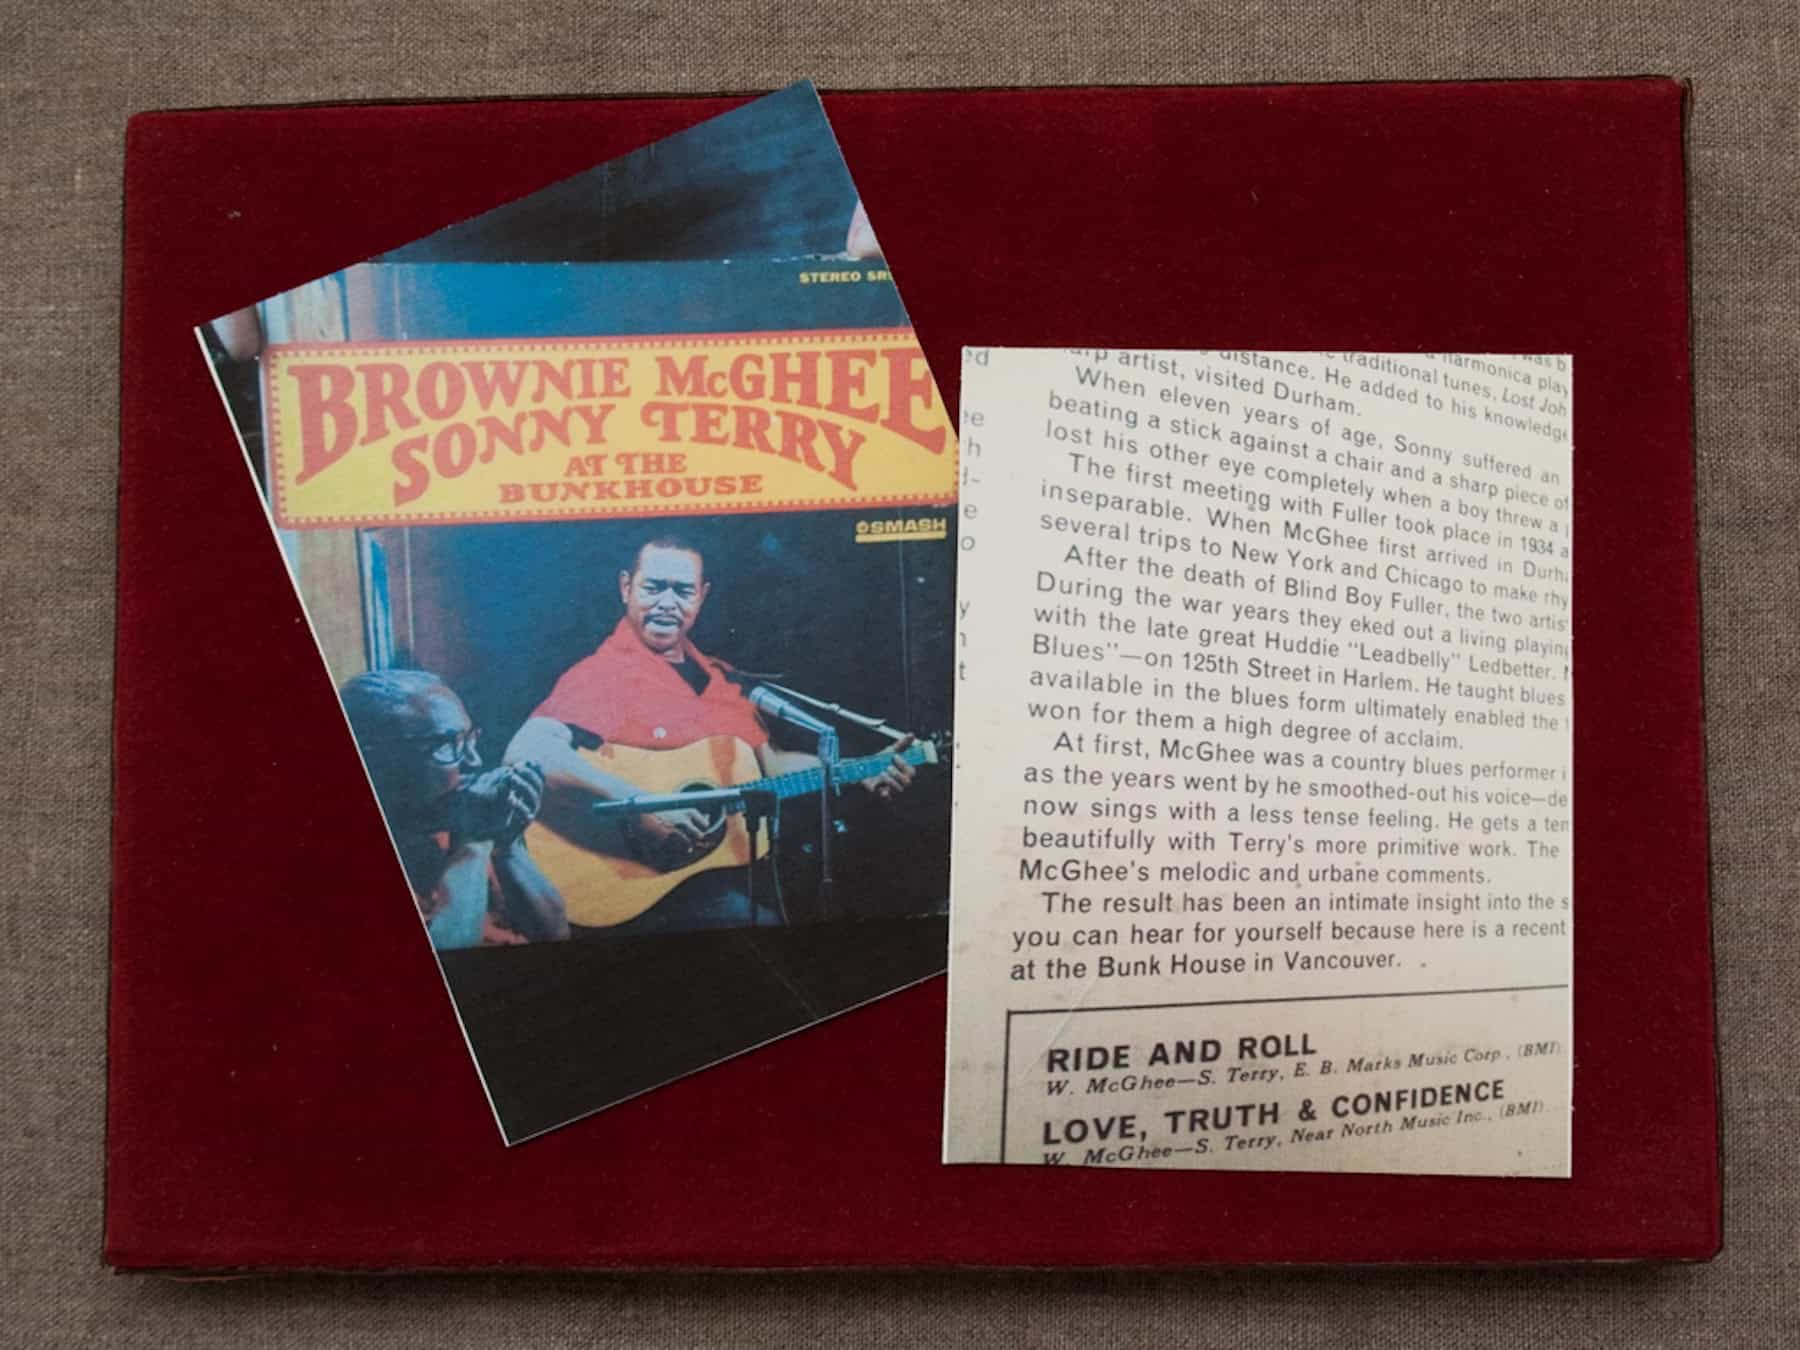 STEREO
BROWNIE McGHEE
SONNY TERRY
AT THE
BUNKHOUSE
SMASH
was
harmonica
traditional tunes, Lost
distance. He added to his
artist, visited Durham.
When eleven years of age, Sonny suffered an
beating a stick against a chair and a sharp piece of
lost his other eye completely when a boy threw a
The first meeting with Fuller took place in 1934
inseparable. When McGhee first arrived in
several trips to New York and Chicago to make
After the death of Blind Boy Fuller, the two
During the war years they eked out a living
with the late great Huddie "Leadbelly" Ledbetter.
Blues"—on 125th Street in Harlem. He taught blues
available in the blues form ultimately enabled the
won for them a high degree of acclaim.
At first, McGhee was a country blues performer
as the years went by he smoothed-out his voice—de
now sings with a less tense feeling. He gets a
beautifully with Terry's more primitive work. The
McGhee's melodic and urbane comments.
The result has been an intimate insight into the
you can hear for yourself because here is a recent
at the Bunk House in Vancouver.
RIDE AND ROLL
W. McGhee—S. Terry, E. B. Marks Music Corp., (BMI)
LOVE, TRUTH & CONFIDENCE
W. McGhee—S. Terry, Near North Music Inc., (BMI)